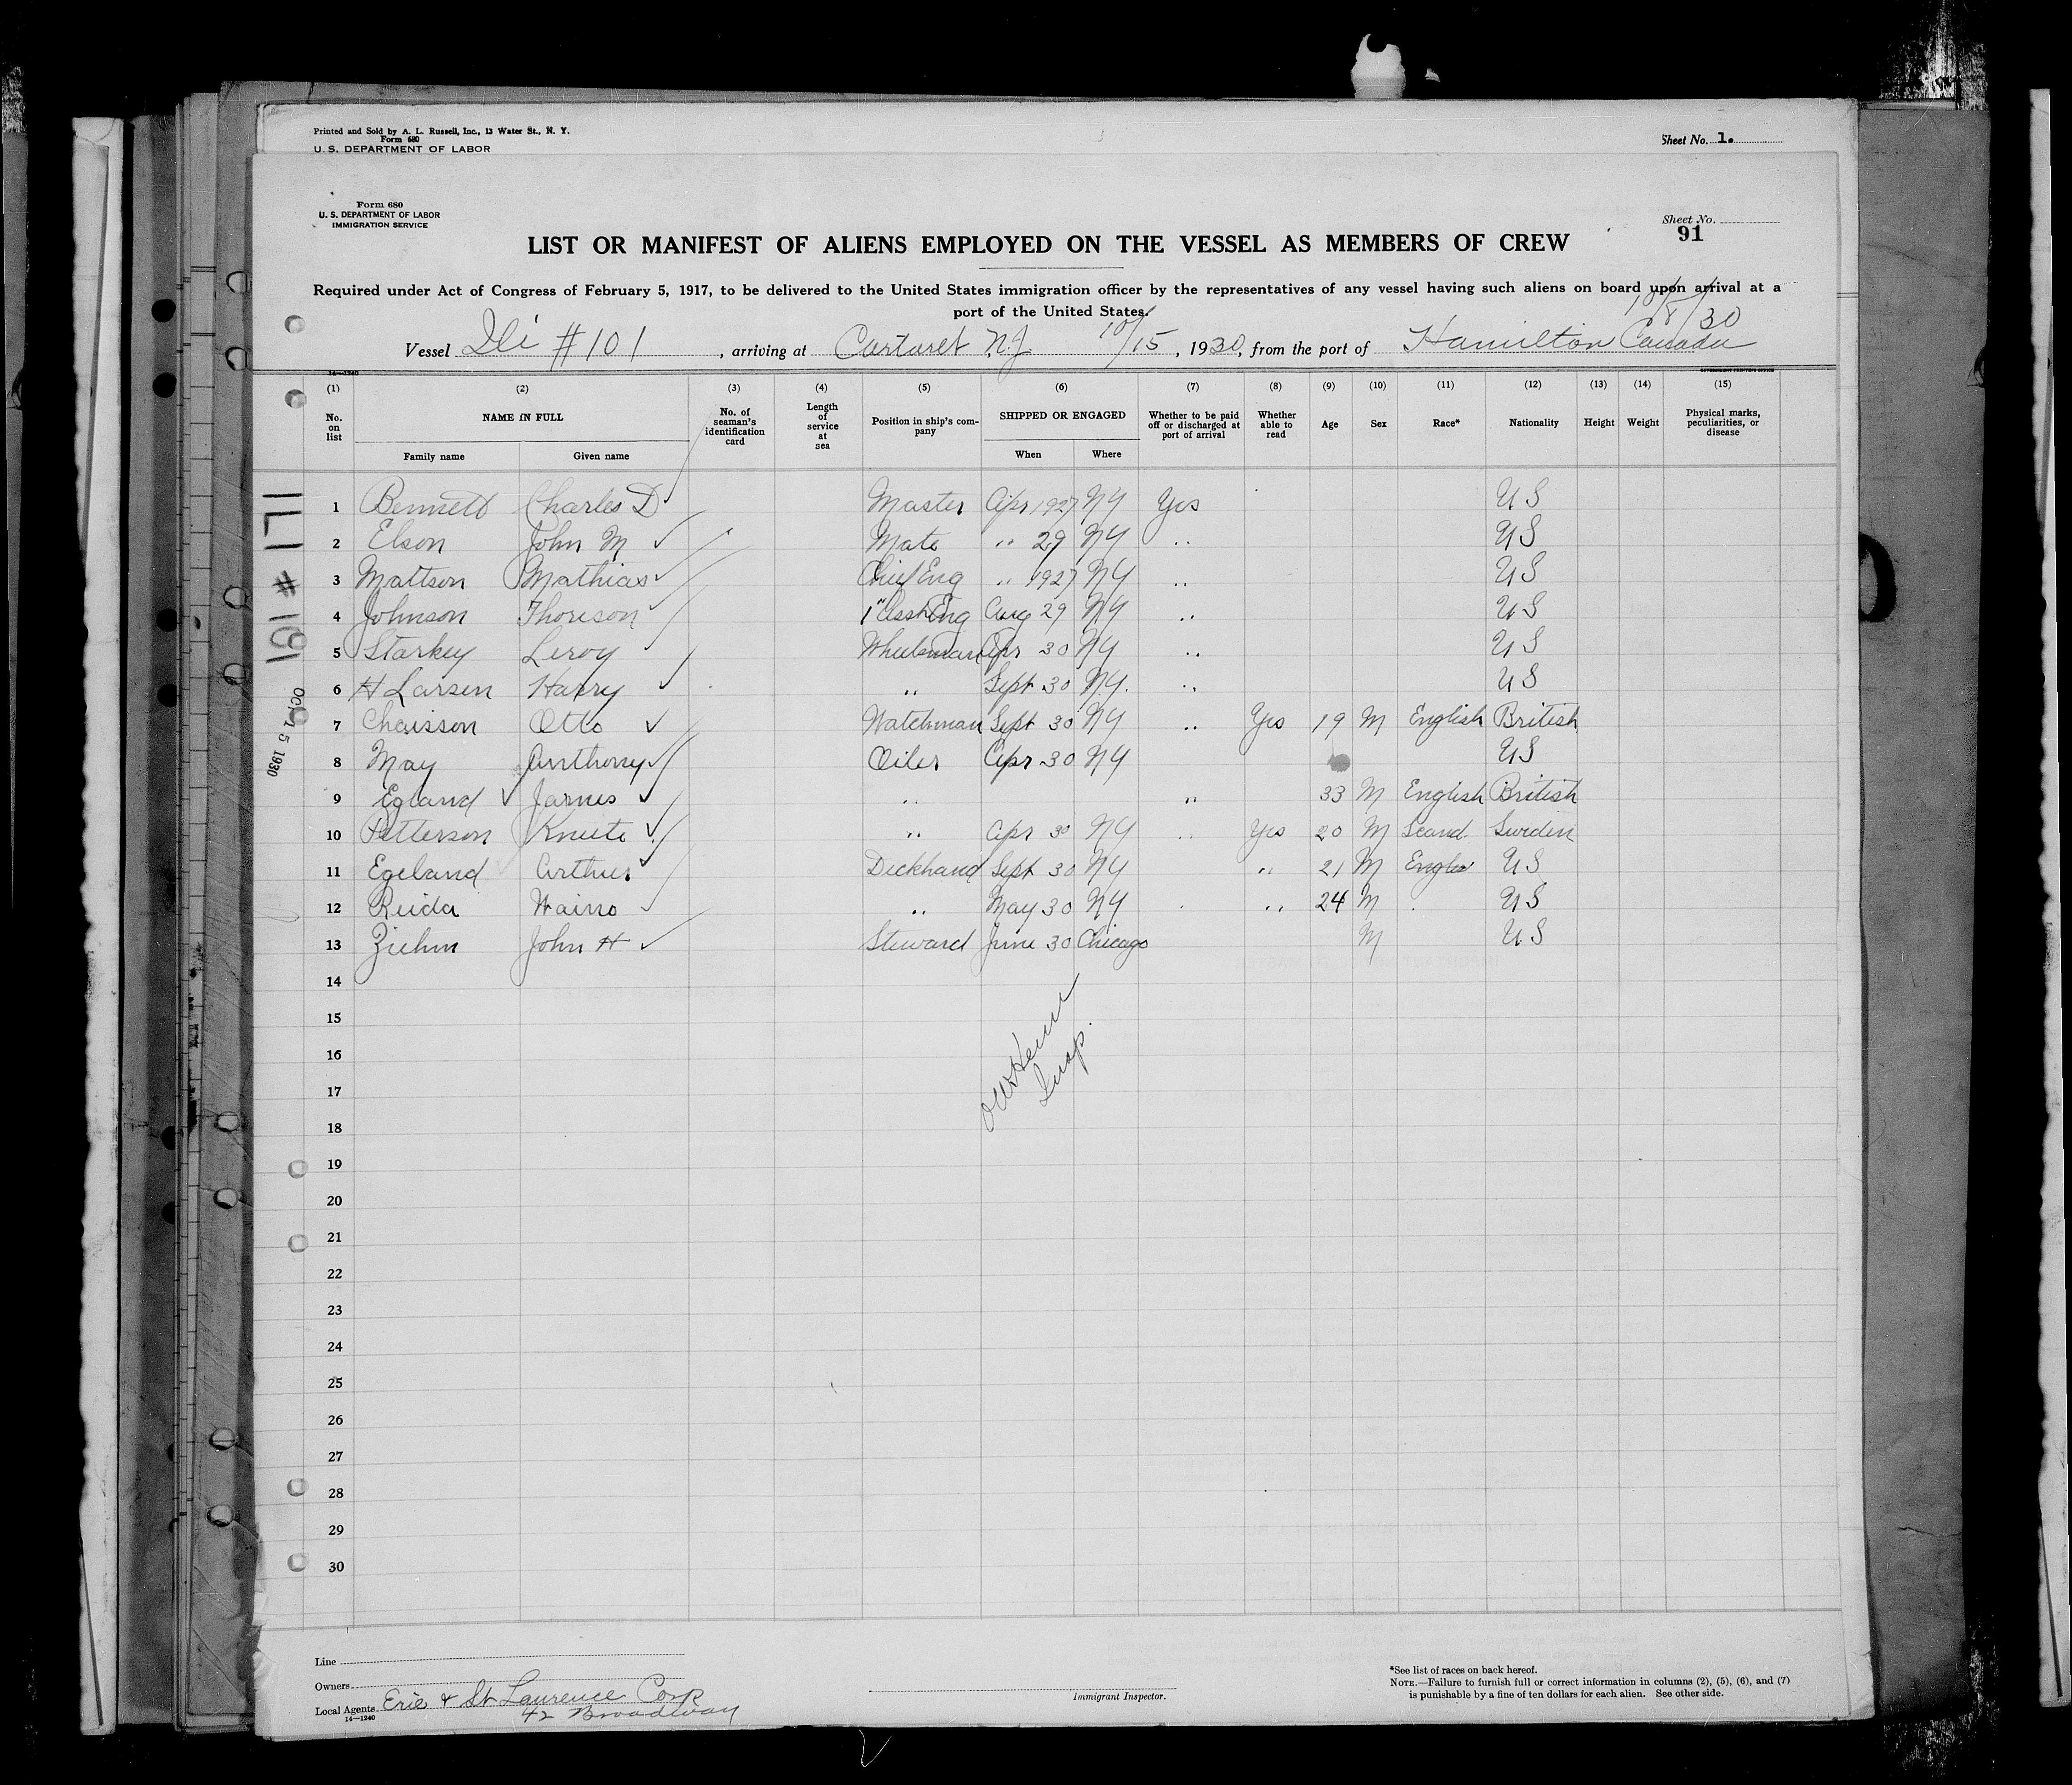 Printed and Sold by A. L. Russell, Inc., 13 Water St., N. Y.
Form 680
U. S. DEPARTMENT OF LABOR
Sheet No. 1.
Form 680
U. S. DEPARTMENT OF LABOR
IMMIGRATION SERVICE
Sheet No.
91
LIST OR MANIFEST OF ALIENS EMPLOYED ON THE VESSEL AS MEMBERS OF CREW
Required under Act of Congress of February 5, 1917, to be delivered to the United States immigration officer by the representatives of any vessel having such aliens on board upon arrival at a
port of the United States.
10/8/30
Vessel Ili #101, arriving at Carturet N.J 10/15, 1930, from the port of Hamilton Canada
(1) (2) (3) (4) (5) (6) (7) (8) (9) (10) (11) (12) (13) (14) (15)
No. on list NAME IN FULL No. of seaman's identification card Length of service at sea Position in ship's company SHIPPED OR ENGAGED Whether to be paid off or discharged at port of arrival Whether able to read Age Sex Race* Nationality Height Weight Physical marks, peculiarities, or disease
Family name Given name When Where
1 Bennett Charles D Master Apr 1927 NY Yes US
2 Elson John M Mate " 29 NY " US
3 Mattson Mathias Chief Eng " 1927 NY " US
4 Johnson Thorison 1" Asst Eng Aug 29 NY " US
5 Starkey Leroy Wheelsman Apr 30 NY " US
6 H Larsen Harry " Sept 30 NY. " US
7 Chaisson Otto Watchman Sept 30 NY " Yes 19 M English British
8 May Anthony Oiler Apr 30 NY US
9 Egland James " " 33 M English British
10 Petterson Knute " Apr 30 NY " Yes 20 M Scand. Sweden
11 Egeland Arthur Deckhand Sept 30 NY " 21 M US
12 Reida Waino " May 30 NY " 24 M US
13 Ziehm John H Steward June 30 Chicago M US
14
15
16
17
18
19
20
21
22
23
24
25
26
27
28
29
30
Insp.
ILI # 101
OCT 15 1930
Line
Owners
Local Agents Erie & St Laurence Corp
42 Broadway
14—1240
Immigrant Inspector.
*See list of races on back hereof.
NOTE.—Failure to furnish full or correct information in columns (2), (5), (6), and (7)
is punishable by a fine of ten dollars for each alien. See other side.